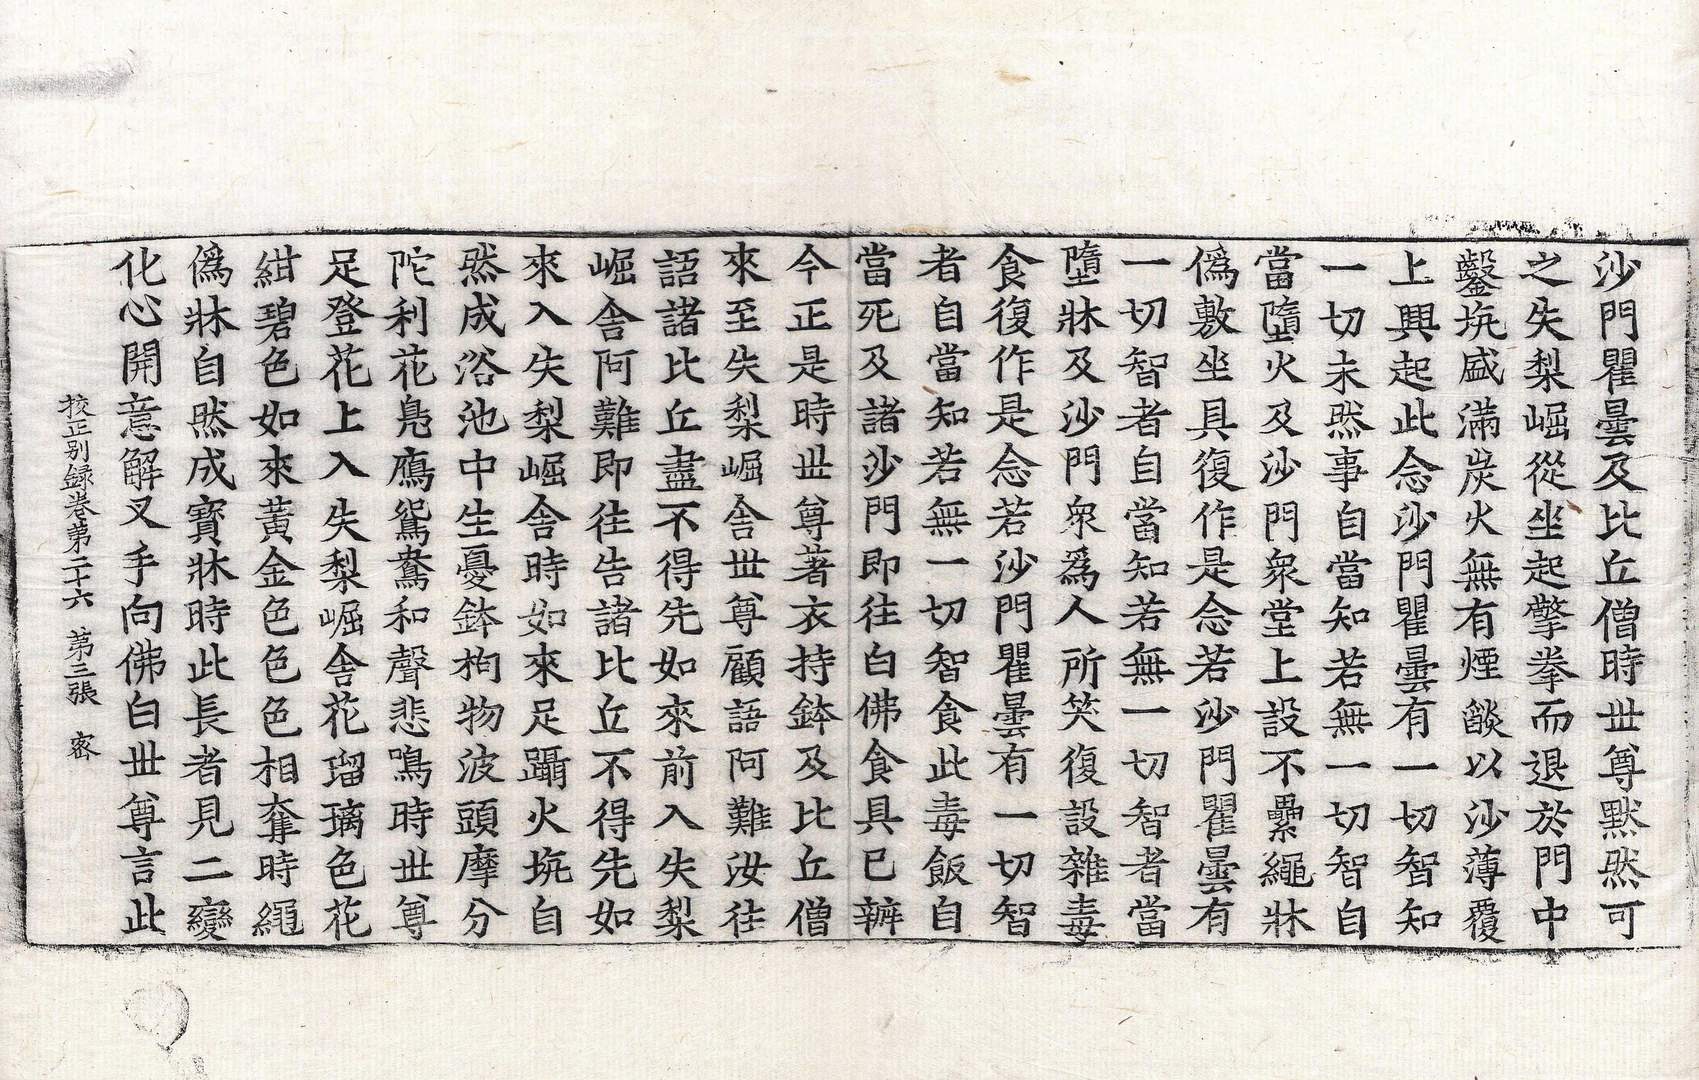 沙門瞿曇及比丘僧時世尊默然可
之失梨崛從坐起擎拳而退於門中
鑿坑盛滿炭火無有煙燄以沙薄覆
上興起此念沙門瞿曇有一切智知
一切未然事自當知若無一切智自
當墮火及沙門衆堂上設不纍繩牀
僞敷坐具復作是念若沙門瞿曇有
一切智者自當知若無一切智者當
墮牀及沙門衆爲人所笑復設雜毒
食復作是念若沙門瞿曇有一切智
者自當知若無一切智食此毒飯自
當死及諸沙門即往白佛食具已辦
今正是時世尊著衣持鉢及比丘僧
來至失梨崛舍世尊顧語阿難汝往
語諸比丘盡不得先如來前入失梨
崛舍阿難即往告諸比丘不得先如
來入失梨崛舍時如來足躡火坑自
然成浴池中生憂鉢拘物波頭摩分
陀利花鳧鴈鴛鴦和聲悲鳴時世尊
足登花上入失梨崛舍花瑠璃色花
紺碧色如來黃金色色色相奪時繩
僞牀自然成寶牀時此長者見二變
化心開意解叉手向佛白世尊言此
校正别録卷第二十六 第三張 密